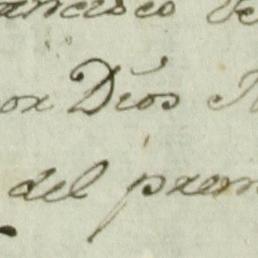 ancisco de
or Dios N
del prem